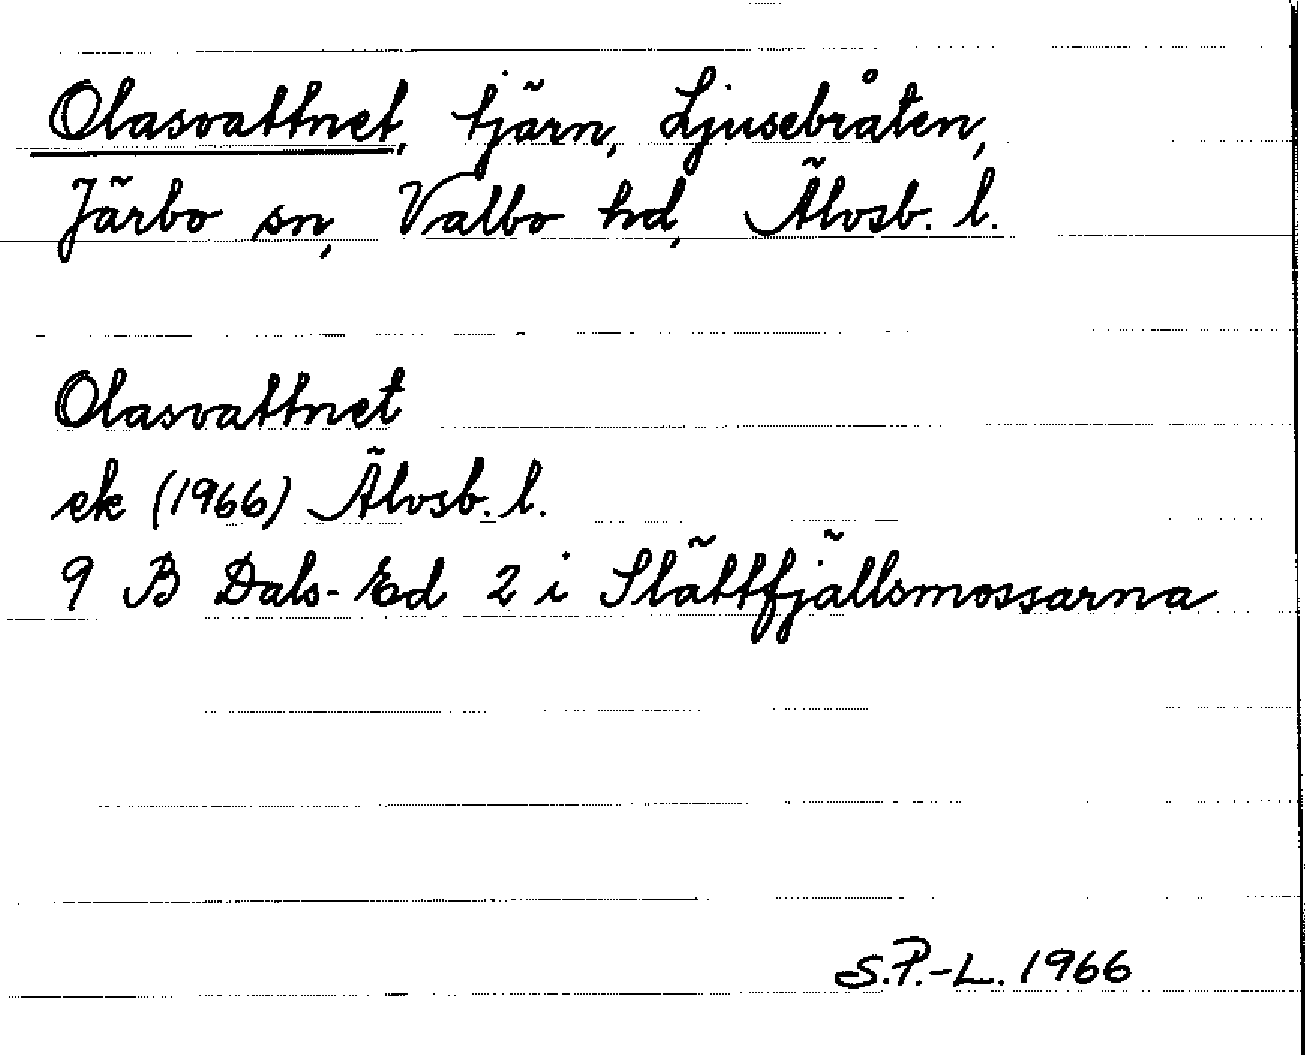 Olasvattnet, tjärn, Ljusebråten,
Järbo sn, Valbo hd, Älvsb. l.
Olasvattnet
ek (1966) Älvsb. l.
9 B Dals-Ed 2 i Slättfjällsmossarna
S.P.-L. 1966